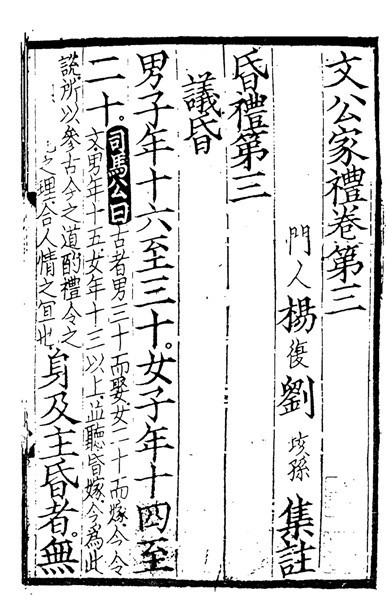 文公家禮卷第三
門人楊復劉垓孫集註
昏禮第三
議昏
男子年十六至三十。女子年十四至
二十。司馬公曰古者男三十而娶女二十而嫁今令
文男年十五女年十三以上並聽昏嫁今為此
說所以參古今之道酌禮令之
之理合人情之宜也身及主昏者。無